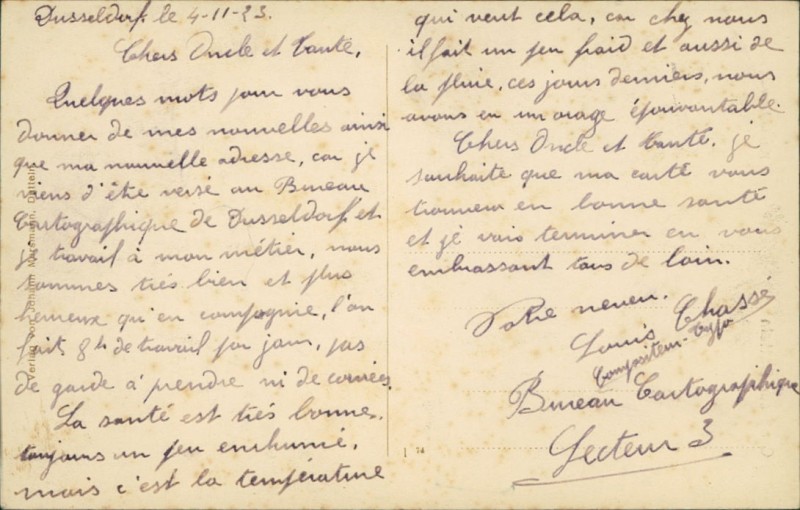 Dusseldorf. le 4-11-23.
Chers Oncle et Tante,
Quelques mots pour vous
donner de mes nouvelles ainsi
que ma nouvelle adresse, car je
viens d'être versé au Bureau
Cartographique de Dusseldorf et
je travail à mon métier, nous
sommes très bien et plus
heureux qu'en compagnie, l'on
fait 8h de travail par jour, pas
de garde à prendre ni de corvées.
La santé est très bonne.
toujours un peu enrhumé,
mais c'est la température
qui veut cela, car chez nous
il fait un peu froid et aussi de
la pluie, ces jours derniers, nous
avons eu un orage épouvantable.
Chers Oncle et Tante, je
souhaite que ma carte vous
trouvera en bonne santé
et je vais terminer en vous
embrassant tous de loin.
Votre neveu.
Louis Chassé
Compositeur-Typo
Bureau Cartographique
Secteur 3
Verlag von
1 74